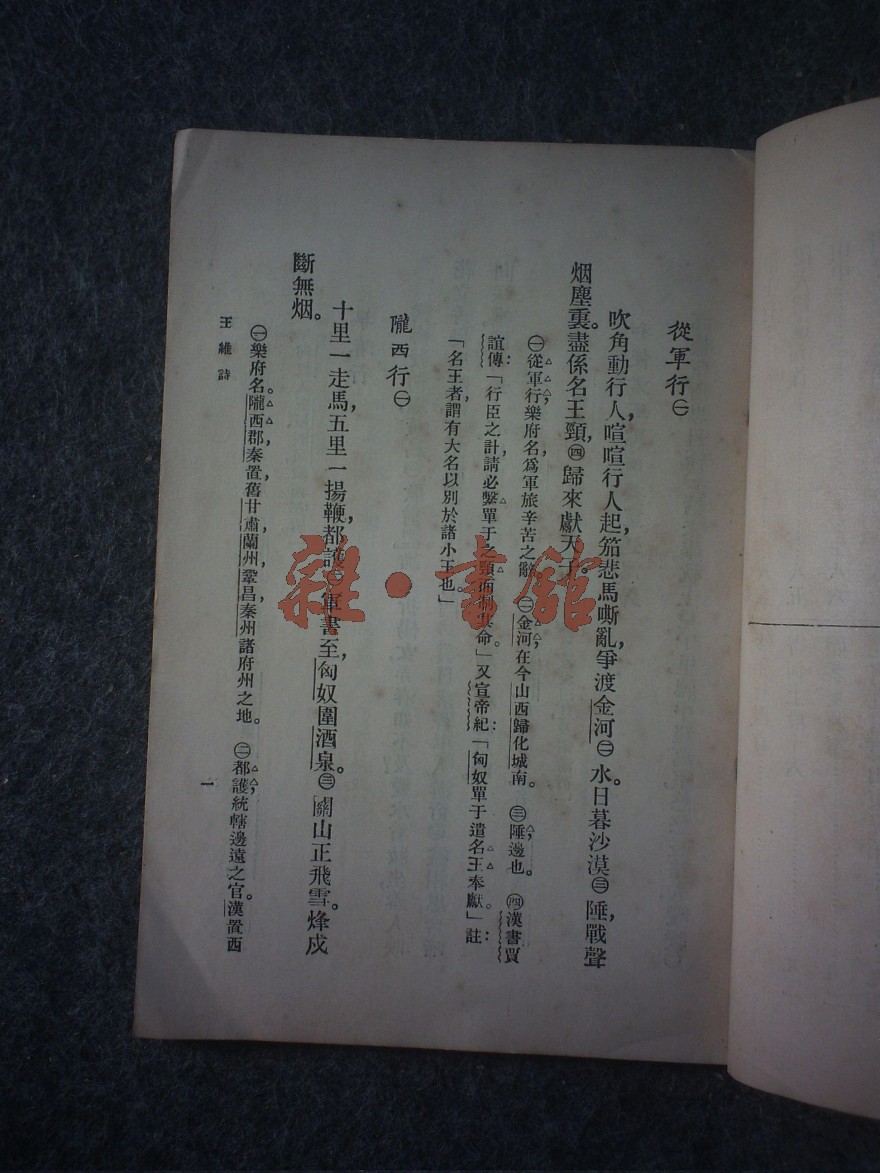 從軍行㊀
吹角動行人，喧喧行人起，笳悲馬嘶亂，爭渡金河㊁水。日暮沙漠㊂陲，戰聲
烟塵裏。盡係名王頸，㊃歸來獻天子。
㊀從軍行，樂府名，爲軍旅辛苦之辭 ㊁金河，在今山西歸化城南。 ㊂陲，邊也。 ㊃漢書賈
誼傳：「行臣之計，請必繫單于之頸而制其命。」又宣帝紀：「匈奴單于遣名王奉獻。」註：
「名王者，謂有大名以別於諸小王也。」
隴西行㊀
十里一走馬，五里一揚鞭，都護㊁軍書至，匈奴圍酒泉。㊂關山正飛雪。烽戍
斷無烟。
㊀樂府名。隴西郡，秦置，舊甘肅蘭州，鞏昌，秦州諸府州之地。 ㊁都護，統轄邊遠之官。漢置西
王維詩
一
雜·書館